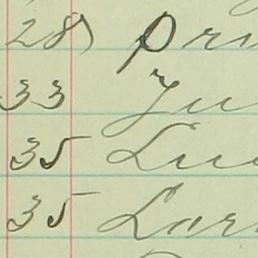 28) Pri
33 Ju
35 Lu
35 Lar